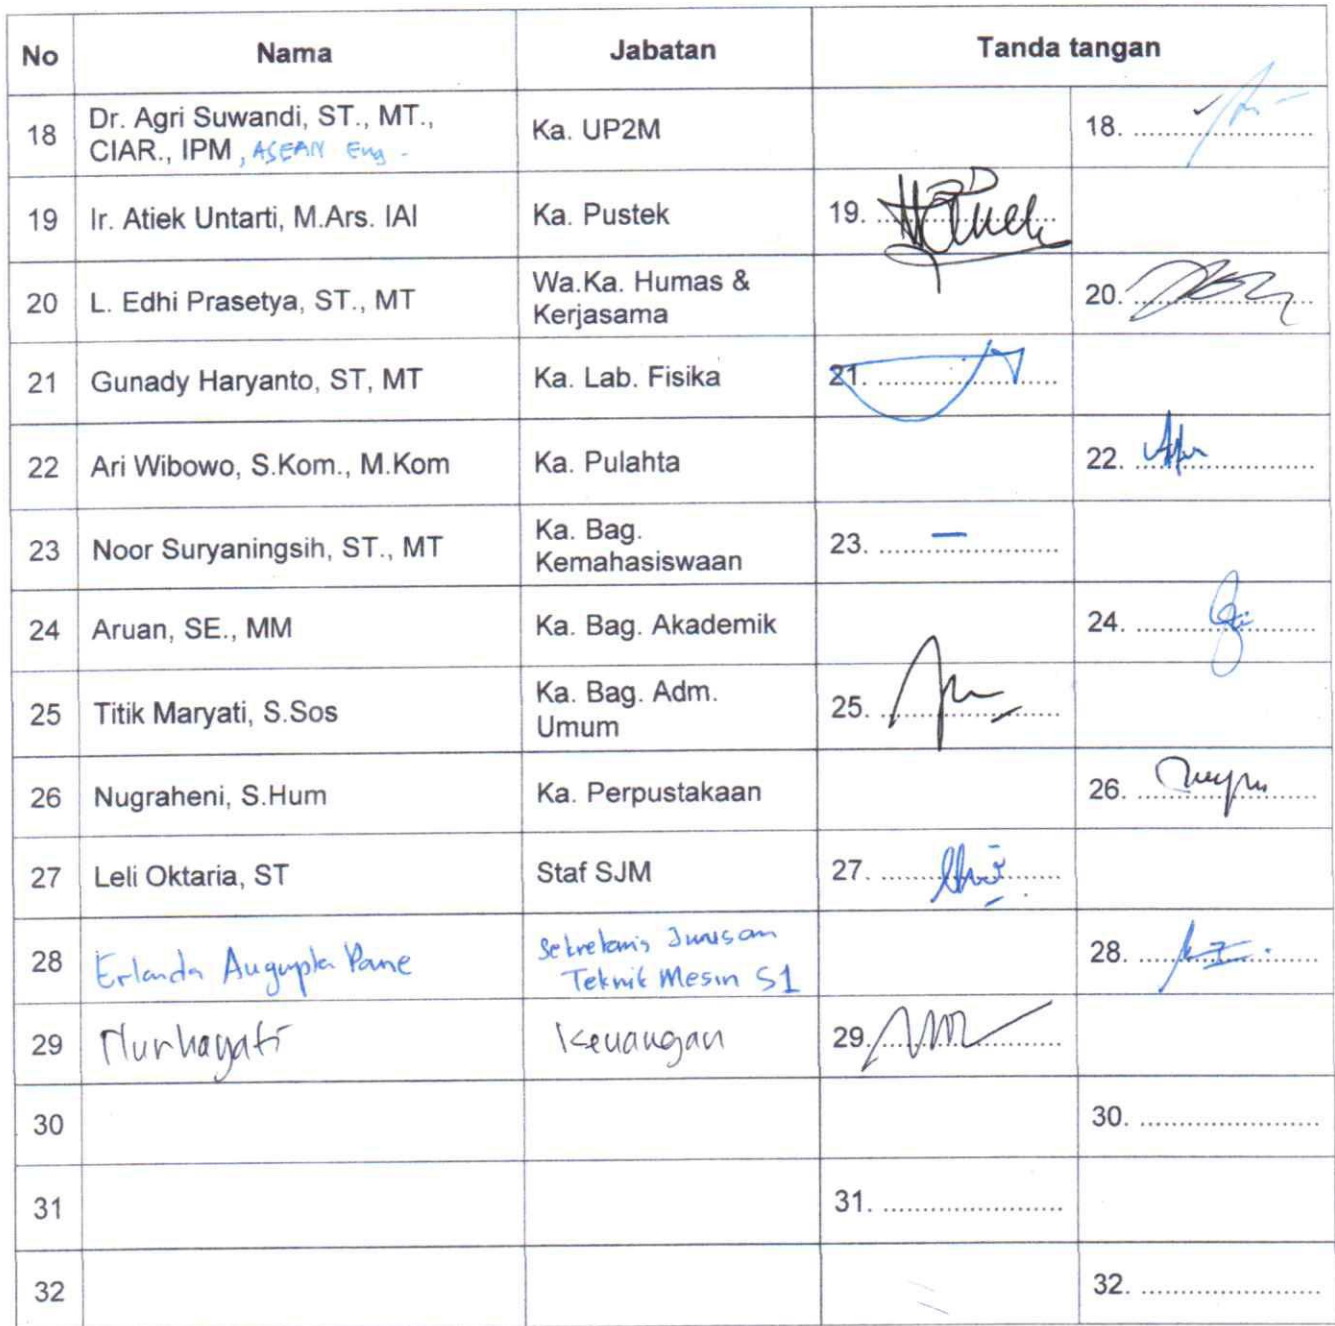 No Nama Jabatan Tanda tangan
18 Dr. Agri Suwandi, ST., MT., Ka. UP2M 18. ....................
CIAR., IPM, ASEAN Eng.
19 Ir. Atiek Untarti, M.Ars. IAI Ka. Pustek 19. ....................
20 L. Edhi Prasetya, ST., MT Wa.Ka. Humas & 20. ....................
Kerjasama
21 Gunady Haryanto, ST, MT Ka. Lab. Fisika 21. ....................
22 Ari Wibowo, S.Kom., M.Kom Ka. Pulahta 22. ....................
23 Noor Suryaningsih, ST., MT Ka. Bag. 23. ....................
Kemahasiswaan
24 Aruan, SE., MM Ka. Bag. Akademik 24. ....................
25 Titik Maryati, S.Sos Ka. Bag. Adm. 25. ....................
Umum
26 Nugraheni, S.Hum Ka. Perpustakaan 26. ....................
27 Leli Oktaria, ST Staf SJM 27. ....................
28 Erlanda Augupta Pane Sekretaris Jurusan 28. ....................
Teknik Mesin S1
29 Nurhayati Keuangan 29. ....................
30 30. ....................
31 31. ....................
32 32. ....................